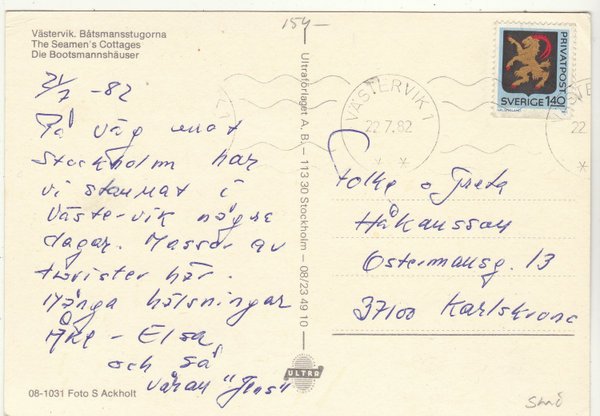 Västervik. Båtsmansstugorna
The Seamen's Cottages
Die Bootsmannshäuser
154-
21/7 -82
På väg mot
Stockholm har
vi stannat i
Västervik några
dagar. Massor av
turister här.
Många hälsningar
Åke - Elsa
och så
våran "Jens"
Ultraförlaget A.B. – 113 30 Stockholm – 08/23 49 10
ULTRA
08-1031 Foto S Ackholt
PRIVATPOST
SVERIGE 140
VÄSTERVIK 1
22.7.82
22.
Folke o Greta
Håkansson
Östermansg. 13
37100 Karlskrona
Små